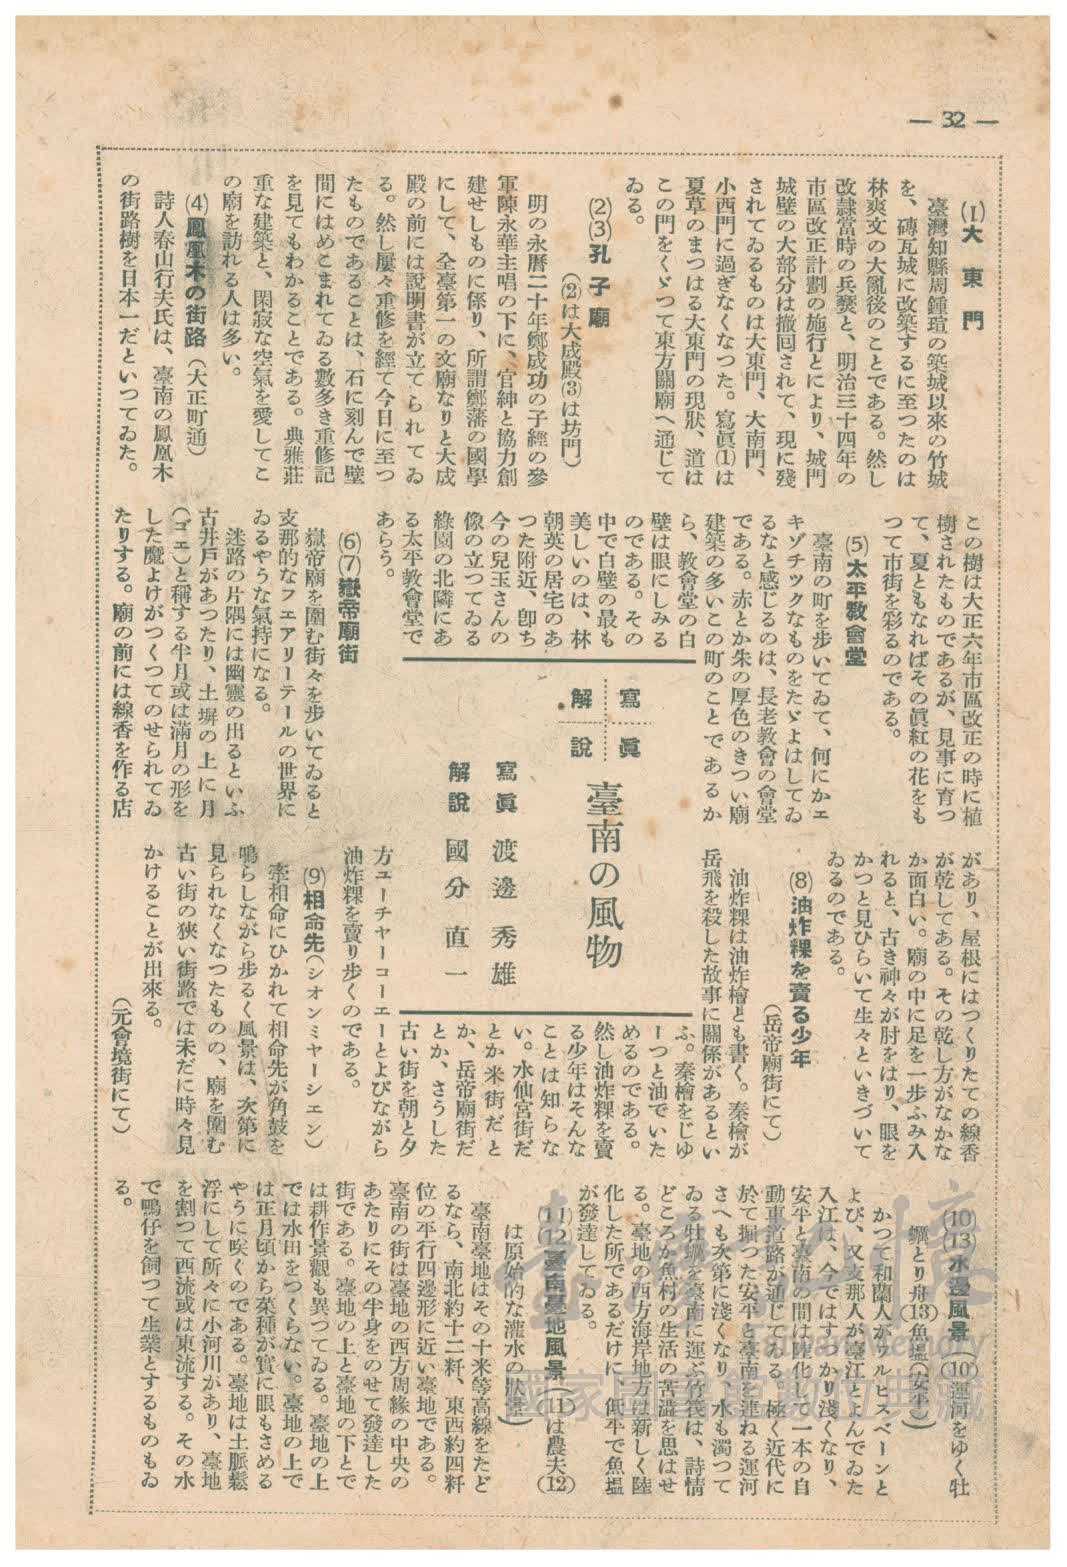 — 32 —
(1)大東門
臺灣知縣周鍾瑄の築城以來の竹城
を、磚瓦城に改築するに至つたのは
林爽文の大亂後のことである。然し
改隷當時の兵燹と、明治三十四年の
市區改正計劃の施行とにより、城門
城壁の大部分は撤回されて、現に殘
されてゐるものは大東門、大南門、
小西門に過ぎなくなつた。寫眞(1)は
夏草のまつはる大東門の現狀、道は
この門をくゞつて東方關廟へ通じて
ゐる。
(2)(3)孔子廟
(2)は大成殿(3)は坊門)
明の永曆二十年鄭成功の子經の參
軍陳永華主唱の下に、官紳と協力創
建せしものに係り、所謂鄭藩の國學
にして、全臺第一の文廟なりと大成
殿の前には說明書が立てられてゐ
る。然し屢々重修を經て今日に至つ
たものであることは、石に刻んで壁
間にはめこまれてゐる數多き重修記
を見てもわかることである。典雅莊
重な建築と、閑寂な空氣を愛してこ
の廟を訪れる人は多い。
(4)鳳凰木の街路(大正町通)
詩人春山行夫氏は、臺南の鳳凰木
の街路樹を日本一だといつてゐた。
この樹は大正六年市區改正の時に植
樹されたものであるが、見事に育つ
て、夏ともなればその眞紅の花をも
つて市街を彩るのである。
(5)太平敎會堂
臺南の町を步いてゐて、何にかエ
キゾチツクなものをたゞよはしてゐ
るなと感じるのは、長老敎會の會堂
である。赤とか朱の厚色のきつい廟
建築の多いこの町のことであるか
ら、敎會堂の白
壁は眼にしみる
のである。その
中で白壁の最も
美しいのは、林
朝英の居宅のあ
つた附近、卽ち
今の兒玉さんの
像の立つてゐる
綠園の北隣にあ
る太平敎會堂で
あらう。
(6)(7)嶽帝廟街
嶽帝廟を圍む街々を步いてゐると
支那的なフエアリーテールの世界に
ゐるやうな氣持になる。
迷路の片隅には幽靈の出るといふ
古井戸があつたり、土塀の上に月
(ゴエ)と稱する半月或は滿月の形を
した魔よけがつくつてのせられてゐ
たりする。廟の前には線香を作る店
寫眞
解說
臺南の風物
寫眞 渡邊秀雄
解說 國分直一
があり、屋根にはつくりたての線香
が乾してある。その乾し方がなかな
か面白い。廟の中に足を一步ふみ入
れると、古き神々が肘をはり、眼を
かつと見ひらいて生々といきづいて
ゐるのである。
(8)油炸粿を賣る少年
(岳帝廟街にて)
油炸粿は油炸檜とも書く。秦檜が
岳飛を殺した故事に關係があるとい
ふ。秦檜をじゆ
ーつと油でいた
めるのである。
然し油炸粿を賣
る少年はそんな
ことは知らな
い。水仙宮街だ
とか米街だと
か、岳帝廟街だ
とか、さうした
古い街を朝と夕
方ユーチヤーコーエーとよびながら
油炸粿を賣り步くのである。
(9)相命先(シオンミヤーシエン)
牽相命にひかれて相命先が角鼓を
鳴らしながら步るく風景は、次第に
見られなくなつたものの、廟を圍む
古い街の狹い街路では未だに時々見
かけることが出來る。
(元會境街にて)
(10)(13)水邊風景 (10)運河をゆく牡
蠣とり舟(13)魚塭(安平)
かつて和蘭人がサルヒスベーンと
よび、又支那人が臺江とよんでゐた
入江は、今ではすつかり淺くなり、
安平と臺南の間は陸化して一本の自
動車道路が通じてゐる。極く近代に
於て掘つた安平と臺南を連ねる運河
さへも次第に淺くなり、水も濁つて
ゐる牡蠣を臺南に運ぶ竹筏は、詩情
どころか魚村の生活の苦澁を思はせ
る。臺地の西方海岸地方は新しく陸
化した所であるだけに、何平で魚塭
が發達してゐる。
(11)(12)臺南臺地風景 (11)は農夫(12)
は原始的な灌水の狀景)
臺南臺地はその十米等高線をたど
るなら、南北約十二粁、東西約四粁
位の平行四邊形に近い臺地である。
臺南の街は臺地の西方周緣の中央の
あたりにその半身をのせて發達した
街である。臺地の上と臺地の下とで
は耕作景觀も異つてゐる。臺地の上
では水田をつくらない。臺地の上で
は正月頃から菜種が實に眼もさめる
やうに咲くのである。臺地は土脈鬆
浮にして所々に小河川があり、臺地
を割つて西流或は東流する。その水
で鴨仔を飼つて生業とするものもゐ
る。
臺灣記憶
Taiwan Memory
國家圖書館數位典藏